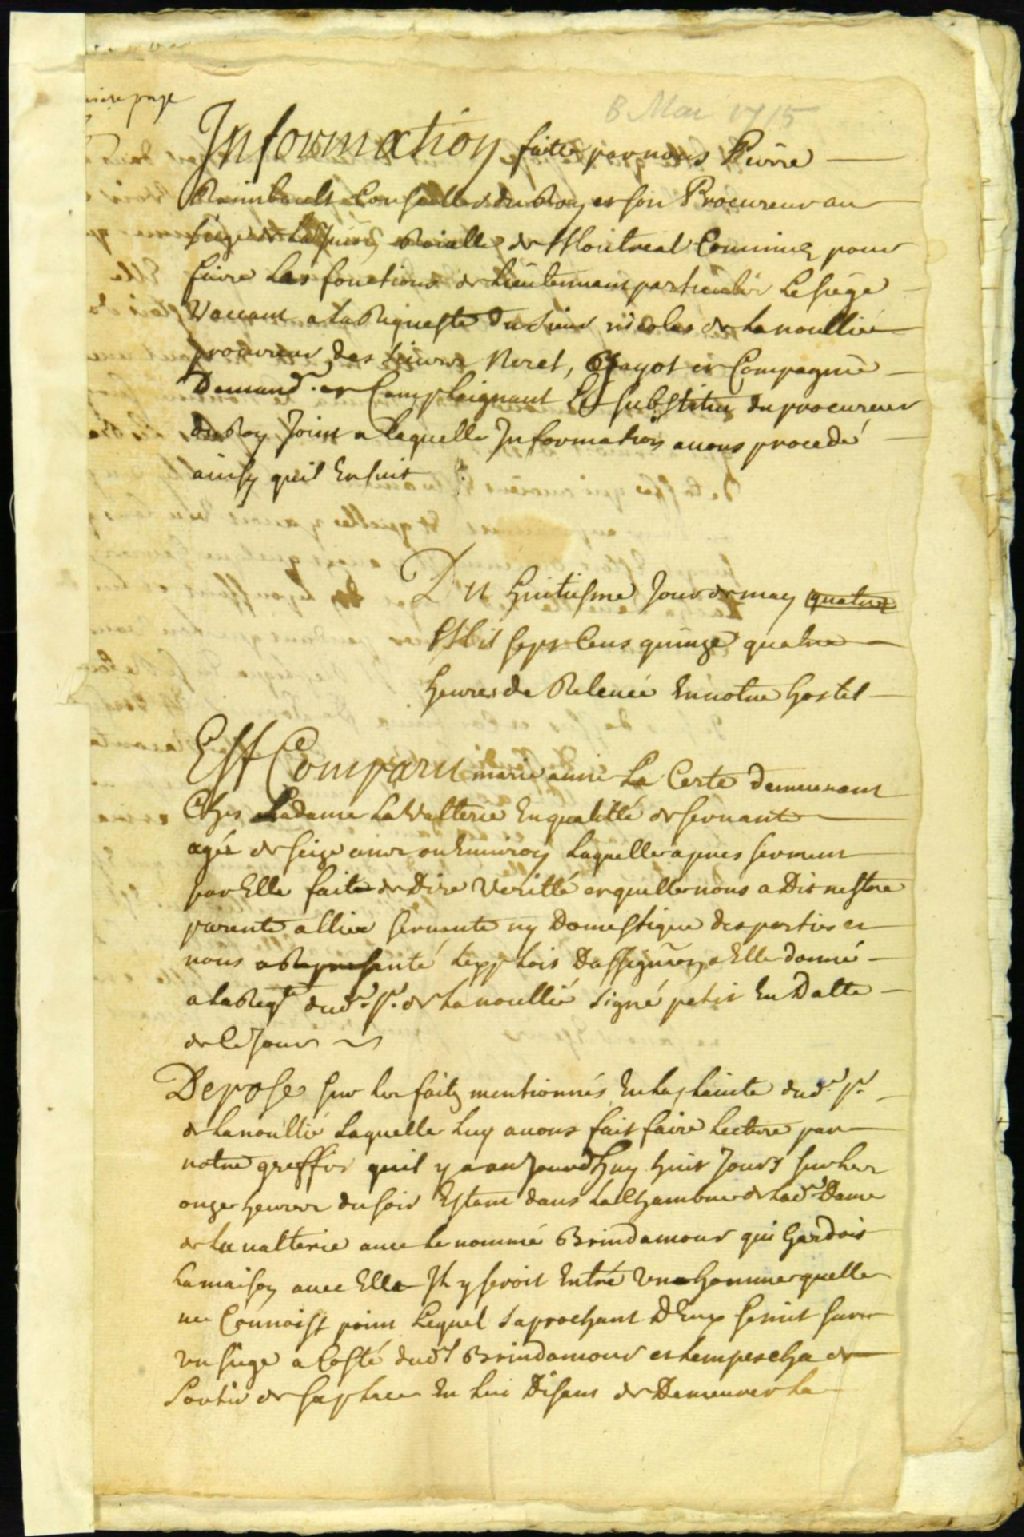 miere page
8 Mai 1715
Information faitte par nous Pierre
Raimbault Conseiller du Roy et son Procureur au
siege de la Jurisd. Roialle de Montreal Commis pour
faire les fonctions de Lieutenant particulier le siege
Vaccant a la Requeste du sieur nicolas de Lanoullié
procureur des sieurs Neret, Gayot et Compagnie
Demandr. et Complaignant Le substitu du procureur
du Roy Joint a laquelle Information avons procedé
ainsy quil Ensuit
Du huitiesme Jour de may quatre
Mil sept Cens quinze quatre
heures de Relevée En notre hostel
Est Comparu marie anne La Certe demeurant
Chez Ladame Lavalterie En qualitté de servante
agée de seize ans ou Environ laquelle apres serment
par Elle fait de Dire Veritté et quelle nous a Dit nestre
parente alliée servante ny Domestique des parties et
nous a Representé lexploit Dassignaon a Elle donné
a la Reqte dud. Sr. de Lanoullié signé petit En Datte
de Ce Jour
Depose sur les faits mentionnés En la plainte dud. Sr.
de Lanoullié Laquelle luy avons fait faire lecture par
notre greffier quil y a aujourdhuy huit Jours sur les
onze heures du soir Estant dans la Chambre de lad. Dame
de Lavalterie avec le nommé Brindamour qui Gardoit
la maison avec Elle Il y seroit Entré Une homme quelle
ne Connoist point lequel saprochant DEux se mit sur
un siege a Costé dudt Brindamour et lempescha de
Sortir de sa place En luy Disant de Demeurer la